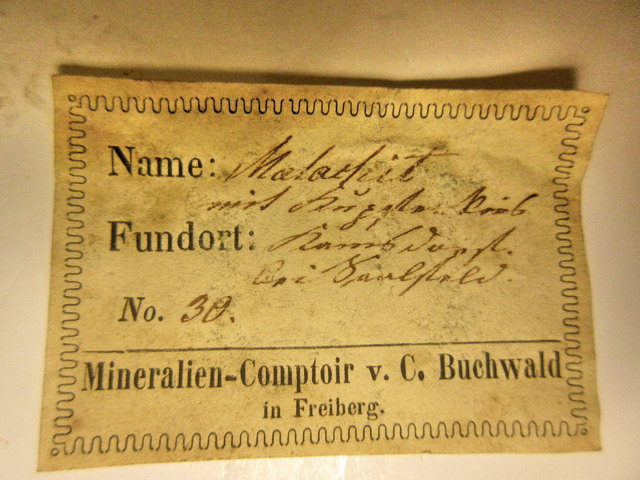 Name: Malachit
mit Kupfer Kies
Fundort: Kamsdorf.
bei Saalfeld.
No. 30.
Mineralien-Comptoir v. C. Buchwald
in Freiberg.